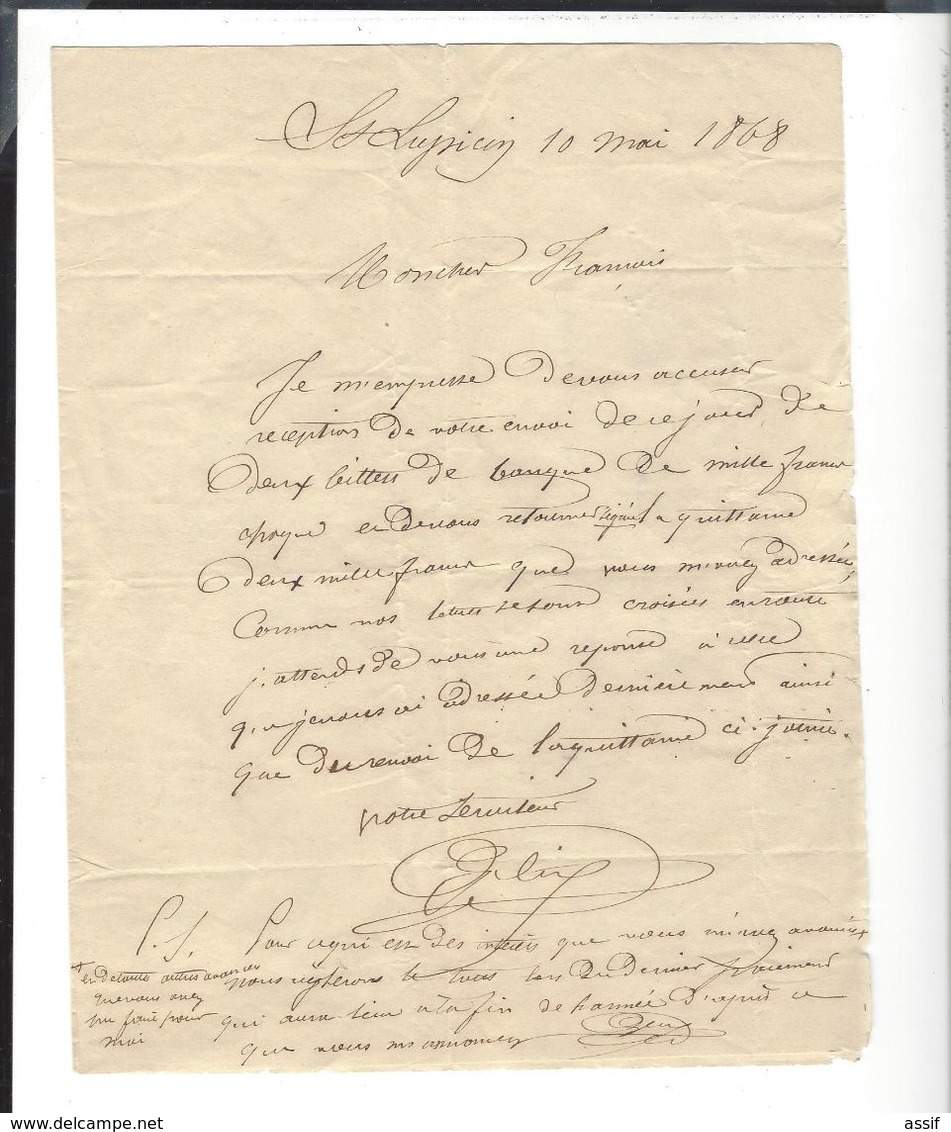 St Lupicin 10 mai 1868
Mon cher François
Je m'empresse de vous accuser
reception de votre envoi de ce jour de
deux billets de banque de mille francs
chaque et de vous retourner signée la quittance
deux mille francs que vous m'avez adressée,
Comme nos lettres se sont croisées en route
j'attends de vous une reponse à celle
que je vous ai adressée dernièrement ainsi
que du renvoi de la quittance ci-jointe.
votre serviteur
P.S. Pour ce qui est des interêts que vous m'avez avancés x
nous règlerons le tout lors du dernier paiement
qui aura lieu à la fin de l'année d'après ce
que vous m'annoncez
+ et de toutes autres avances
que vous avez
pu faire pour
moi
delcampe.net
assif